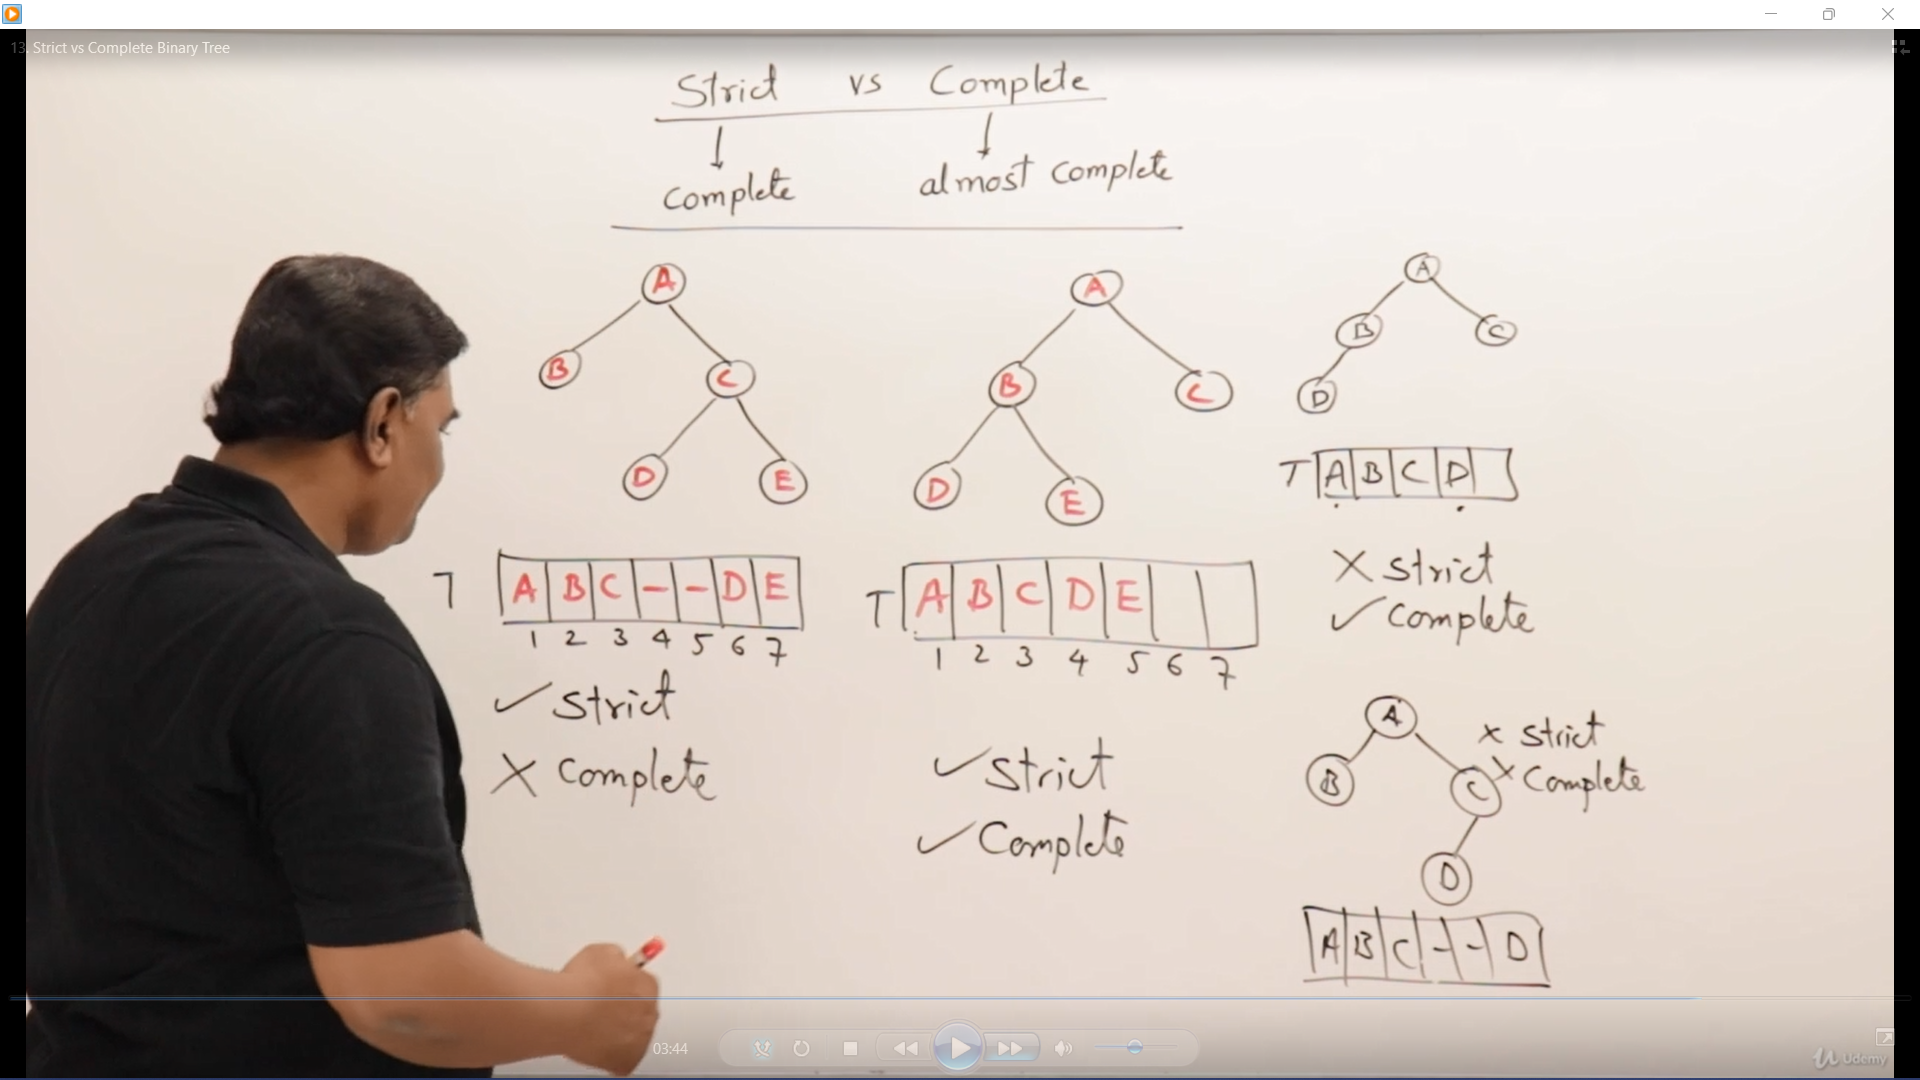 13. Strict vs Complete Binary Tree
Strict vs Complete
Complete almost complete
A
B C
D E
T A B C - - D E
1 2 3 4 5 6 7
✓ Strict
X Complete
A
B C
D E
T A B C D E
1 2 3 4 5 6 7
✓ Strict
✓ Complete
A
B C
D
T A B C D
X Strict
✓ Complete
A
B C
D
x Strict
x Complete
A B C - - D
03:44
Udemy